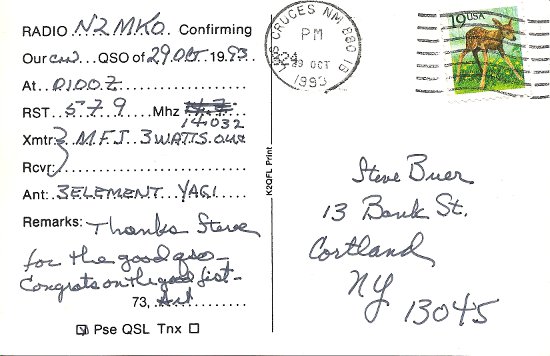 RADIO N2MKO Confirming
Our cw QSO of 29 Oct 1993
At 0100Z
RST 579 Mhz
14.032
Xmtr: MFJ 3WATTS out
Rcvr:
Ant: 3ELEMENT YAGI
Remarks: Thanks Steve
for the good qso-
Congrats on the good fist-
73, Art
☑ Pse QSL Tnx ☐
K2QFL Print
LAS CRUCES NM 880 16
PM
29 OCT
1993
19 USA
Steve Buer
13 Bank St.
Cortland
NY
13045